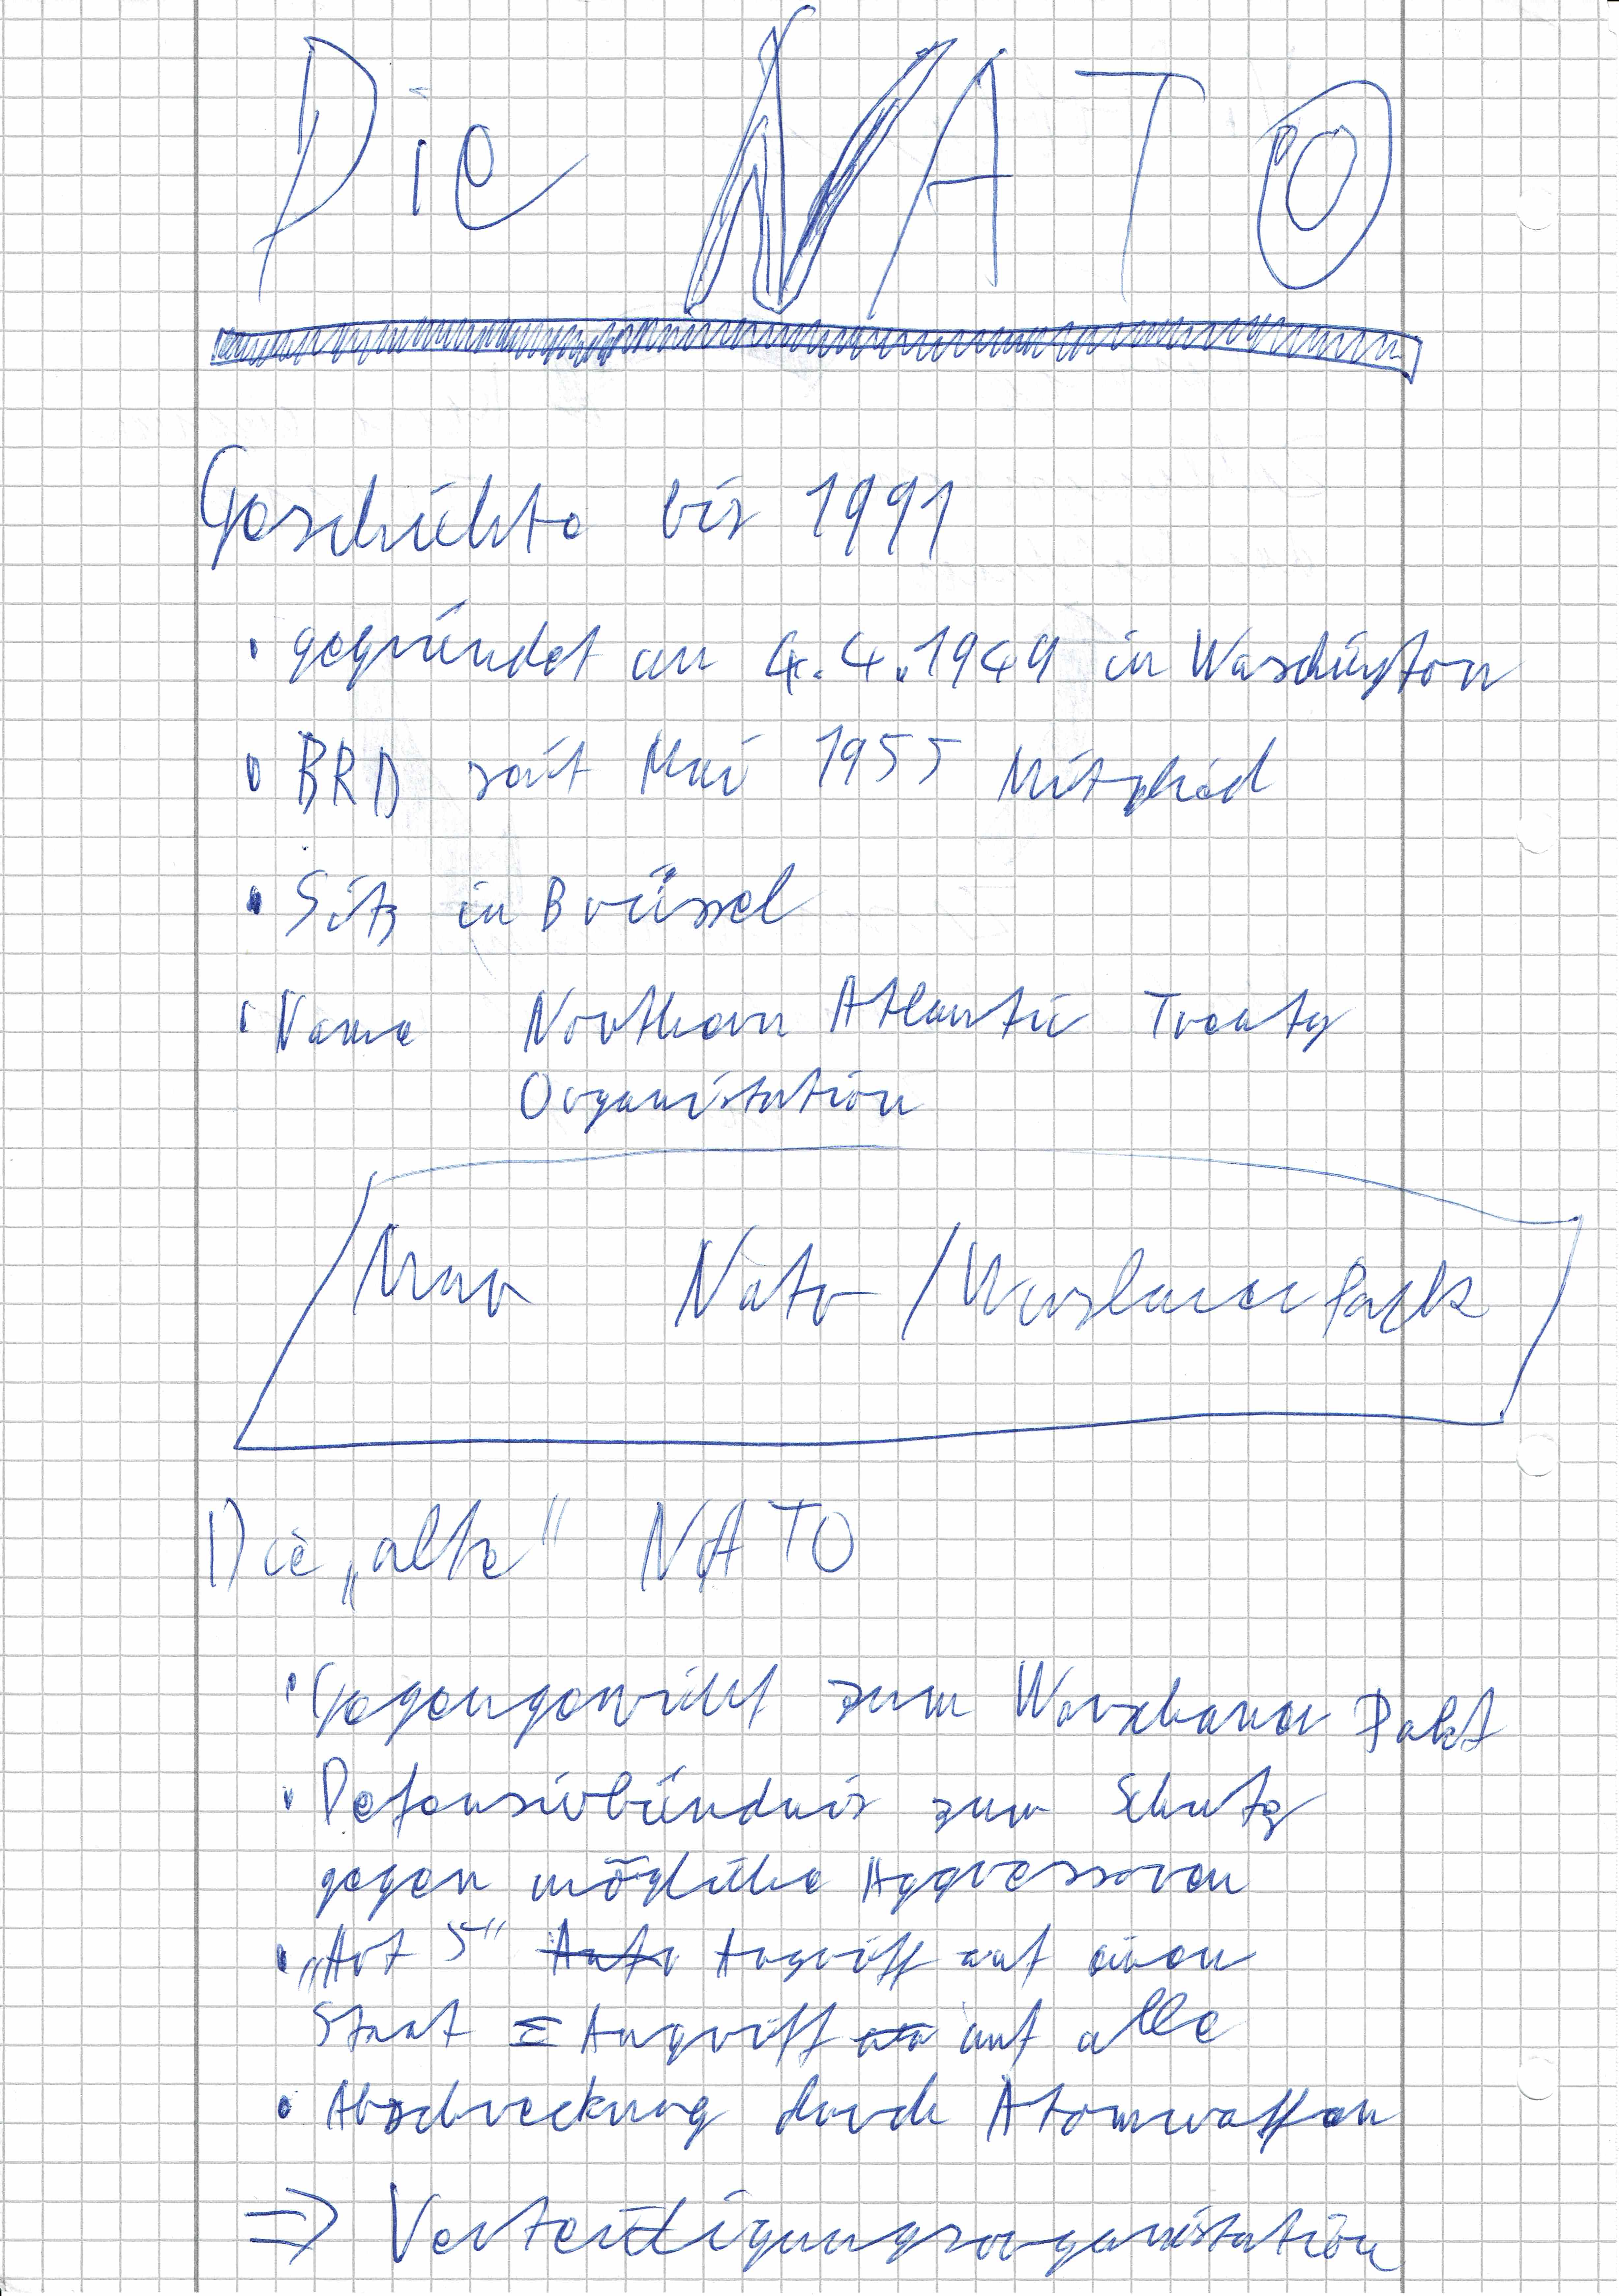 Die NATO
Geschichte bis 1991
• gegründet am 4.4.1949 in Waschington
• BRD seit Mai 1955 Mitglied
• Sitz in Brüssel
• Name Northern Atlantic Treaty
Organistation
Nato / Warschauer Pack
Die „alte" NATO
• Gegengewicht zum Warschauer Pakt
• Defensivbündnis zum Schutz
gegen mögliche Aggressoren
• „Art 5" Angriff auf einen
Staat = Angriff auf alle
• Abschreckung durch Atomwaffen
⇒ Verteitigungsorganistation